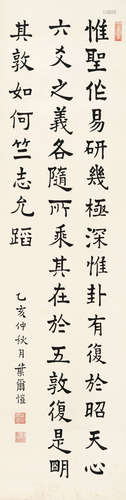 惟聖作易研幾極深惟卦有復於昭天心
六爻之義各隨所乘其在於五敦復是明
其敦如何竺志允蹈
乙亥仲秋月葉爾愷